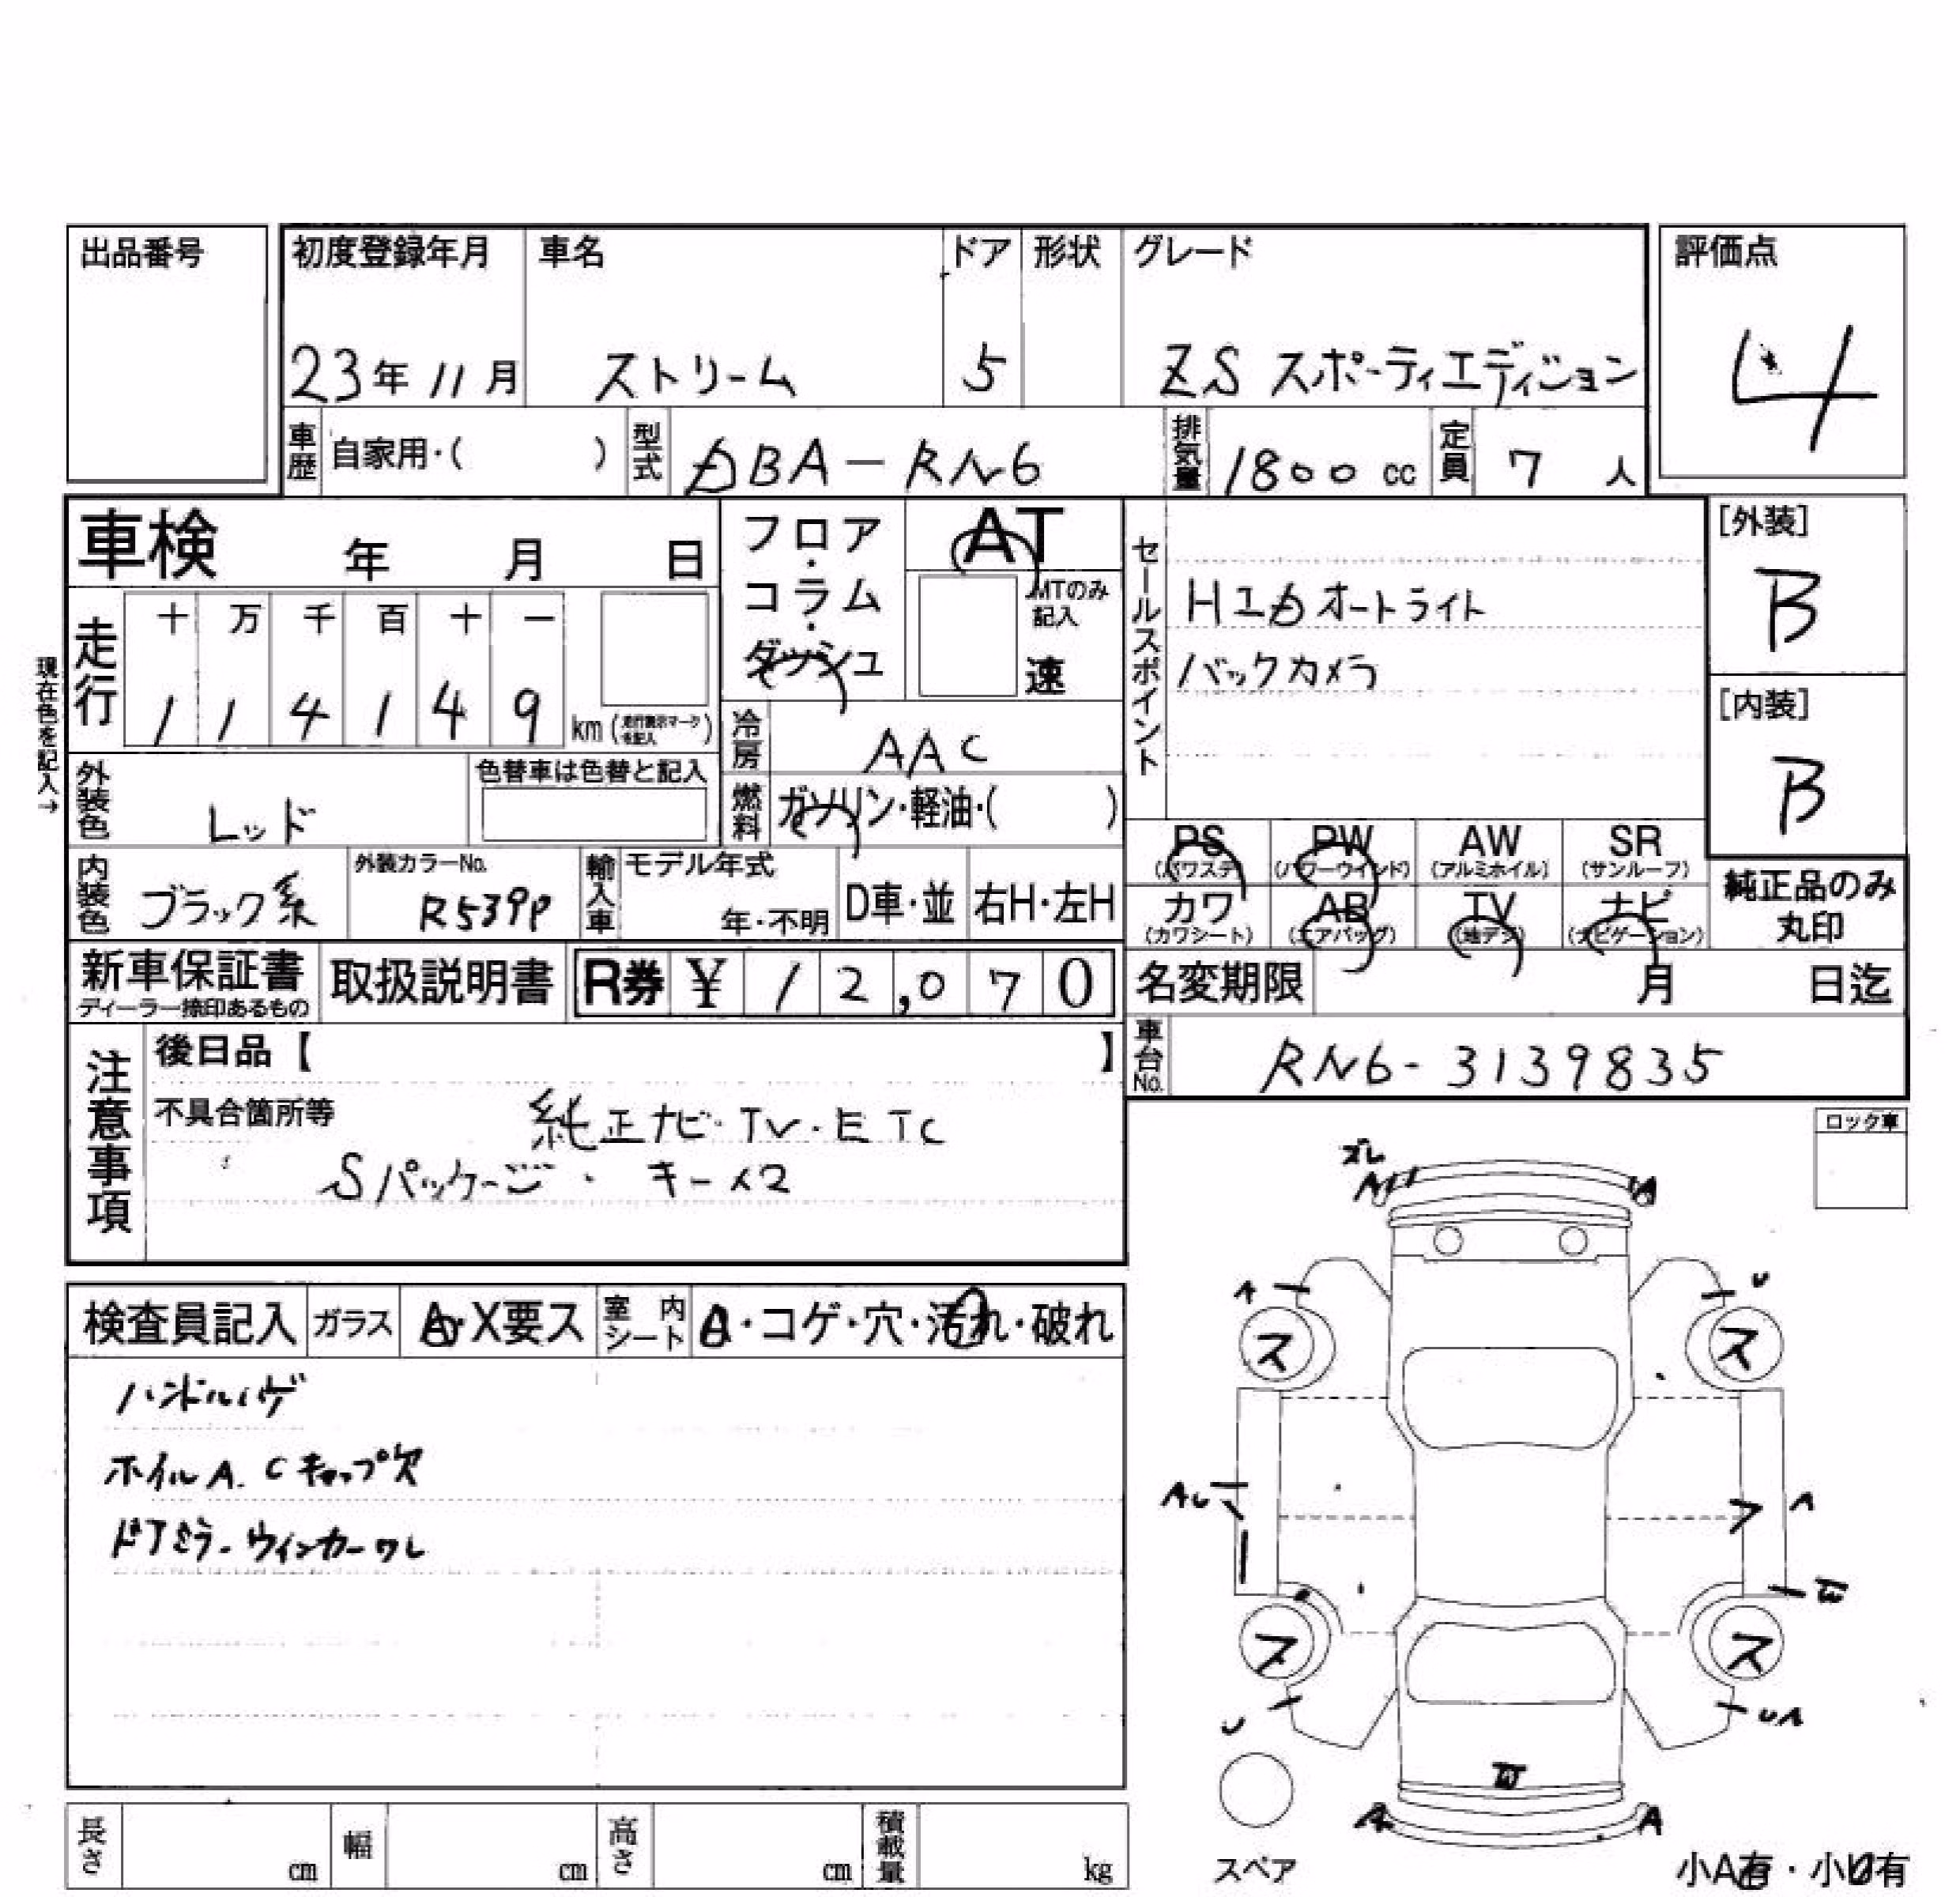 出品番号
初度登録年月 車名 ドア 形状 グレード 評価点
23年11月 ストリーム 5 ZS スポーティエディション 4
車歴 自家用・( ) 型式 DBA-RN6 排気量 1800cc 定員 7人
車検 年 月 日
フロア・コラム・ダッシュ
AT
MTのみ記入
速
現在色を記入→
走行 十 万 千 百 十 一
1 1 4 1 4 9 km (走行表示マークを記入)
冷房 AAC
燃料 ガソリン・軽油・( )
外装色 レッド 色替車は色替と記入
内装色 ブラック系 外装カラーNo. R539P
輸入車 モデル年式 年・不明 D車・並 右H・左H
セールスポイント
HIDオートライト
バックカメラ
[外装]
B
[内装]
B
PS (パワステ) PW (パワーウインド) AW (アルミホイル) SR (サンルーフ)
カワ (カワシート) AB (エアバッグ) TV (地デジ) ナビ (ナビゲーション)
純正品のみ丸印
新車保証書 ディーラー捺印あるもの 取扱説明書 R券 ¥ 12,070
名変期限 月 日迄
車台No. RN6-3139835
注意事項
後日品【 】
不具合箇所等 純正ナビ・TV・ETC
Sパッケージ・キー×2
ロック車
検査員記入 ガラス A・X要ス 室内シート A・コゲ・穴・汚れ・破れ
ハンドルハゲ
ホイルA.Cキャップ欠
ドアミラーウィンカーワレ
ズレ
A A
A U
ス ス
AU A
W
ス ス
U UA
W
A A
スペア
小A有・小U有
長さ cm 幅 cm 高さ cm 積載量 kg